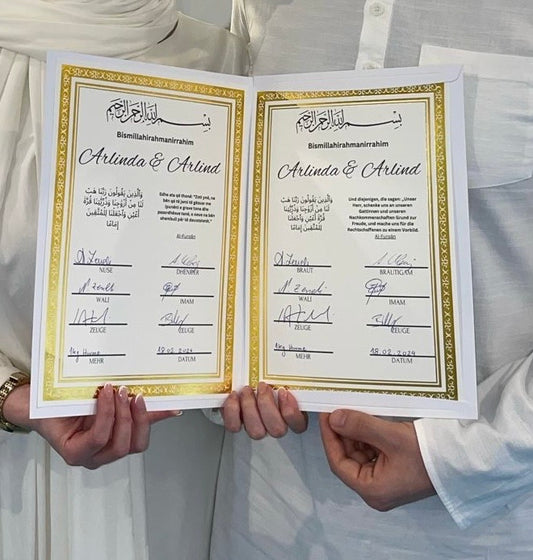 بسم الله الرحمن الرحيم
Bismillahirahmanirrahim
Arlinda & Arlind
وَالَّذِينَ يَقُولُونَ رَبَّنَا هَبْ
لَنَا مِنْ أَزْوَاجِنَا وَذُرِّيَّاتِنَا قُرَّةَ
أَعْيُنٍ وَاجْعَلْنَا لِلْمُتَّقِينَ
إِمَامًا
Edhe ata që thonë: "Zoti ynë, na
bën që të jemi të gëzuar me
(punën) e grave tona dhe
pasardhësve tanë, e neve na bën
shembull për të devotshmit.
Al-Furqân
NUSE
DHËNDËR
WALI
IMAM
ZEUGE
ZEUGE
1kg Hurme
18.02.2024
MEHR
DATUM
بسم الله الرحمن الرحيم
Bismillahirahmanirrahim
Arlinda & Arlind
وَالَّذِينَ يَقُولُونَ رَبَّنَا هَبْ
لَنَا مِنْ أَزْوَاجِنَا وَذُرِّيَّاتِنَا
قُرَّةَ أَعْيُنٍ وَاجْعَلْنَا
لِلْمُتَّقِينَ إِمَامًا
Und diejenigen, die sagen: „Unser
Herr, schenke uns an unseren
Gattinnen und unseren
Nachkommenschaften Grund zur
Freude, und mache uns für die
Rechtschaffenen zu einem Vorbild.
Al-Furqân
BRAUT
BRÄUTIGAM
WALI
IMAM
ZEUGE
ZEUGE
1kg Hurme
18.02.2024
MEHR
DATUM